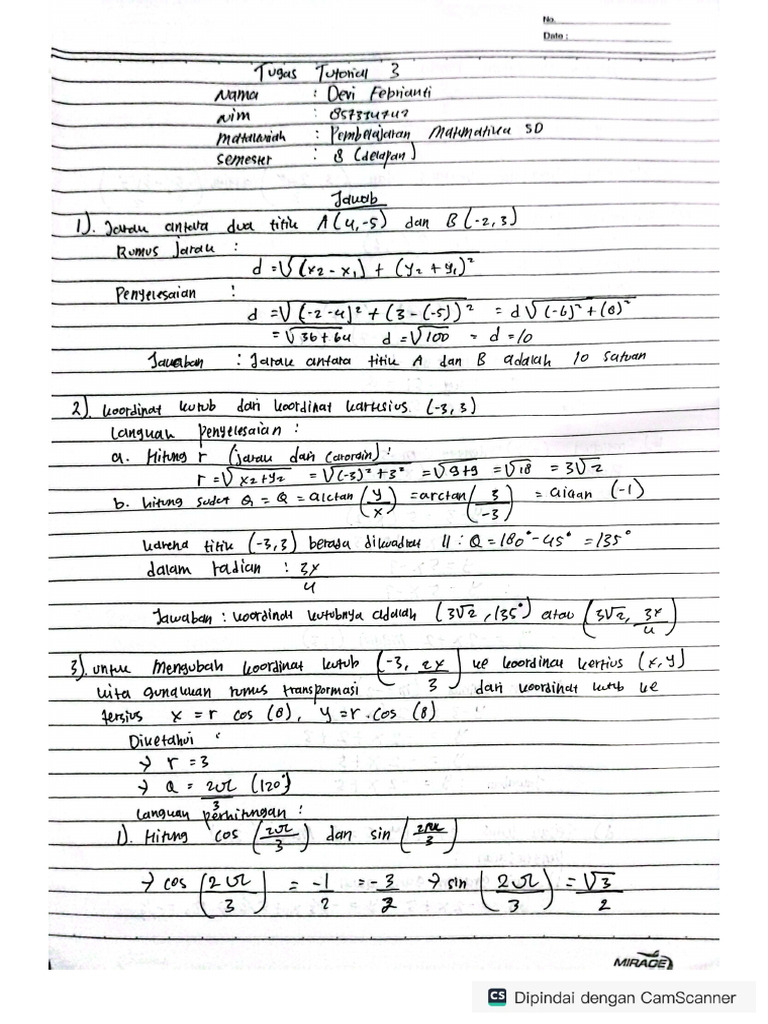 No.
Date :
Tugas Tutorial 3
Nama : Devi Febrianti
Nim :
Matakuliah : Pembelajaran Matematika SD
Semester : 8 (delapan)
Jawab
1). Jarak antara dua titik A(4,-5) dan B(-2,3)
Rumus Jarak :
d = √(x2 - x₁) + (y₂ + y₁)²
Penyelesaian :
d = √(-2-4)² + (3-(-5))² = d√(-6)² + (8)²
= √36+64 d = √100 = d = 10
Jawaban : Jarak antara titik A dan B adalah 10 satuan
2). koordinat kutub dari koordinat kartesius (-3,3)
Langkah penyelesaian :
a. Hitung r (jarak dari :
r = √x2+y2 = √(-3)² + 3² = √9+9 = √18 = 3√2
b. hitung sudut Q = Q = arctan (y/x) = arctan (3/-3) = (-1)
karena titik (-3,3) berada dikuadran II : Q = 180° - 45° = 135°
dalam radian : 3x/4
Jawaban : koordinat kutubnya adalah (3√2, 135°) atau (3√2, 3x/4)
3). untuk mengubah koordinat kutub (-3, 2x/3) ke koordinat kertius (x,y)
kita gunakan rumus transpormasi dari koordinat kutub ke
tersius x = r cos (θ), y = r. cos (θ)
Diketahui :
→ r = 3
→ Q = 2π/3 (120°)
Langkah perhitungan :
1). Hitung cos (2π/3) dan sin (2π/3)
→ cos (2π/3) = -1/2 = -3/2 → sin (2π/3) = √3/2
MIRAGE
CS Dipindai dengan CamScanner